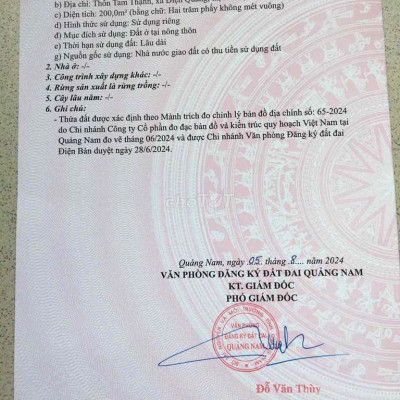 b) Địa chỉ: Thôn Tam Thạnh, xã Điện Quang,
c) Diện tích: 200,0m² (bằng chữ: Hai trăm phẩy không mét vuông)
d) Hình thức sử dụng: Sử dụng riêng
đ) Mục đích sử dụng: Đất ở tại nông thôn
e) Thời hạn sử dụng đất: Lâu dài
g) Nguồn gốc sử dụng: Nhà nước giao đất có thu tiền sử dụng đất
2. Nhà ở: -/-
3. Công trình xây dựng khác: -/-
4. Rừng sản xuất là rừng trồng: -/-
5. Cây lâu năm: -/-
6. Ghi chú:
- Thửa đất được xác định theo Mảnh trích đo chỉnh lý bản đồ địa chính số: 65-2024
do Chi nhánh Công ty Cổ phần đo đạc bản đồ và kiến trúc quy hoạch Việt Nam tại
Quảng Nam đo vẽ tháng 06/2024 và được Chi nhánh Văn phòng Đăng ký đất đai
Điện Bàn duyệt ngày 28/6/2024.
choTỐT
Quảng Nam, ngày .05. tháng .8.... năm 2024
VĂN PHÒNG ĐĂNG KÝ ĐẤT ĐAI QUẢNG NAM
KT. GIÁM ĐỐC
PHÓ GIÁM ĐỐC
VĂN PHÒNG
ĐĂNG KÝ ĐẤT ĐAI
QUẢNG NAM
Đỗ Văn Thùy